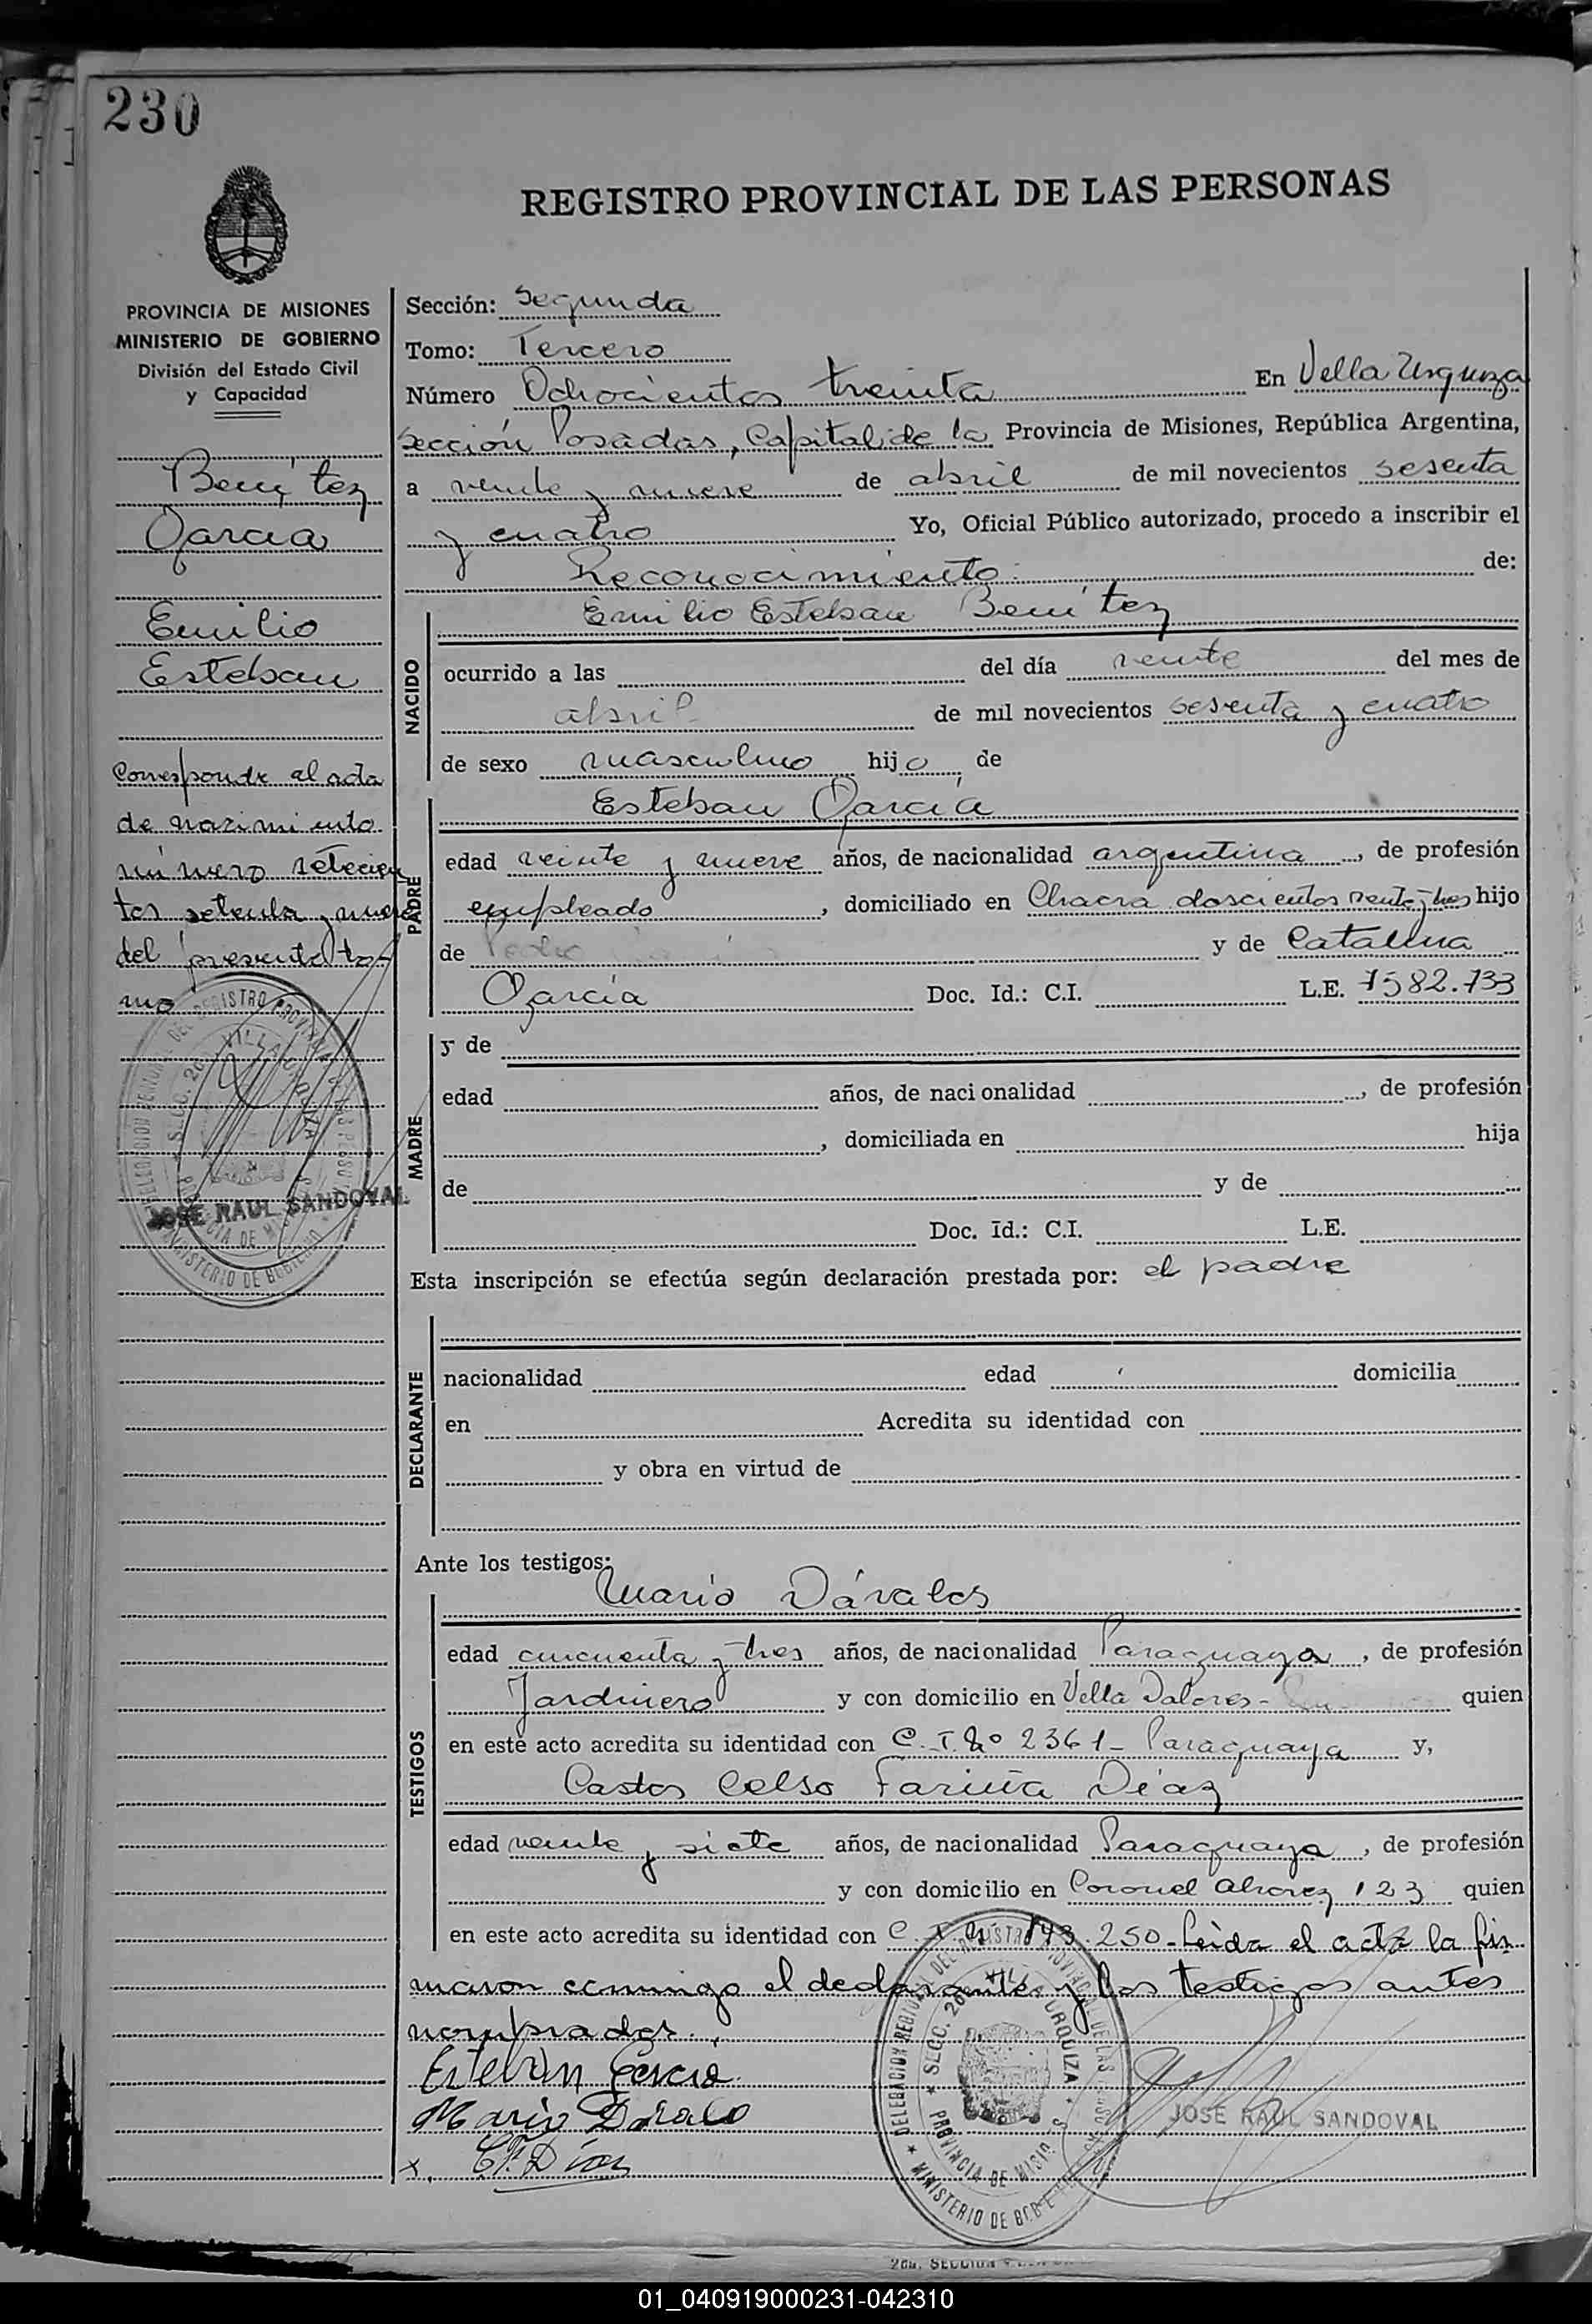 230
REGISTRO PROVINCIAL DE LAS PERSONAS
PROVINCIA DE MISIONES
MINISTERIO DE GOBIERNO
División del Estado Civil
y Capacidad
Benitez
Garcia
Emilio
Esteban
Corresponde al acta
de nacimiento
número setecien
tos setenta y nueve
del presente to-
mo
JOSE RAUL SANDOVAL
Sección: Segunda
Tomo: Tercero
Número Ochocientos treinta En Villa Urquiza
Sección Posadas, Capital de la Provincia de Misiones, República Argentina,
a veinte y nueve de abril de mil novecientos sesenta
y cuatro Yo, Oficial Público autorizado, procedo a inscribir el
Reconocimiento de:
NACIDO
Emilio Esteban Benítez
ocurrido a las del día veinte del mes de
abril de mil novecientos sesenta y cuatro
de sexo masculino hijo de
PADRE
Esteban García
edad veinte y nueve años, de nacionalidad argentina, de profesión
empleado, domiciliado en Chacra doscientos veinte y tres hijo
de Pedro y de Catalina
García Doc. Id.: C.I. L.E. 7582.733
MADRE
y de
edad años, de nacionalidad , de profesión
, domiciliada en hija
de y de
Doc. Id.: C.I. L.E.
Esta inscripción se efectúa según declaración prestada por: el padre
DECLARANTE
nacionalidad edad domicilia
en Acredita su identidad con
y obra en virtud de
Ante los testigos:
TESTIGOS
Mario Dávalos
edad cincuenta y tres años, de nacionalidad Paraguaya, de profesión
Jardinero y con domicilio en Villa Dolores- quien
en este acto acredita su identidad con C.I. Nº 2361- Paraguaya y,
Castor Celso Fariña Díaz
edad veinte y siete años, de nacionalidad Paraguaya, de profesión
y con domicilio en Coronel Alvarez 123 quien
en este acto acredita su identidad con C.I. Nº 143.250- Leída el acta la fir
maron conmigo el declarante y los testigos antes
nombrados.
Esteban Garcia
Mario Dávalo
x. C.F. Díaz
DELEGACION REGIONAL DEL REGISTRO PROVINCIAL DE LAS PERSONAS
SECC. 2da. VILLA URQUIZA
PROVINCIA DE MISIONES
MINISTERIO DE GOBIERNO
JOSE RAUL SANDOVAL
2da. SECCION
01_040919000231-042310